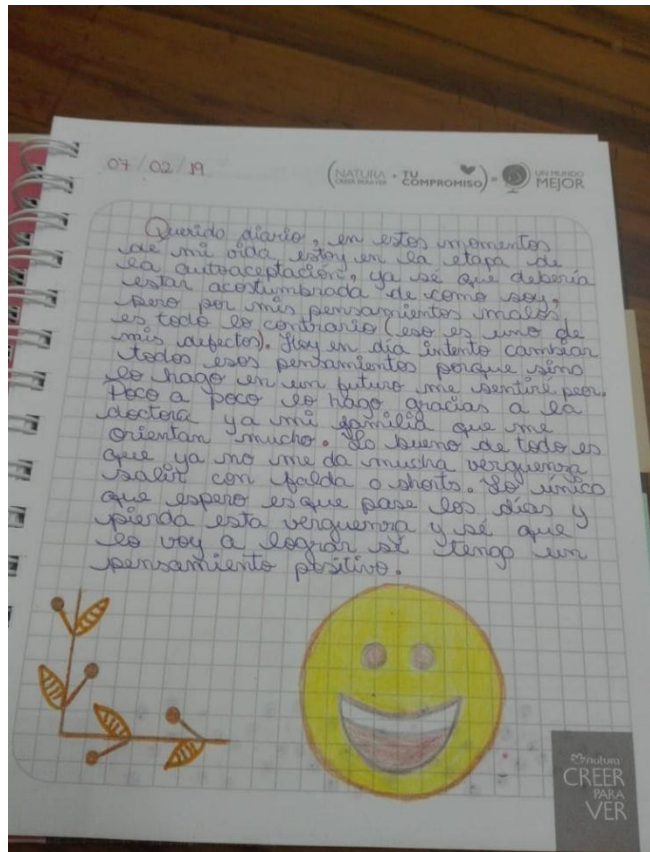 07/02/19
(NATURA + TU = UN MUNDO
CREER PARA VER COMPROMISO) MEJOR
Querido diario, en estos momentos
de mi vida, estoy en la etapa de
la autoaceptación, ya sé que debería
estar acostumbrada de como soy,
pero por mis pensamientos malos
es todo lo contrario (eso es uno de
mis defectos). Hoy en día intento cambiar
todos esos pensamientos porque sino
lo hago en un futuro me sentiré peor.
Poco a poco lo hago gracias a la
doctora ya mi familia que me
orientan mucho. Lo bueno de todo es
que ya no me da mucha verguenza
salir con falda o shorts. Lo único
que espero es que pase los días y
pierda esta verguenza y sé que
lo voy a lograr sé tengo un
pensamiento positivo.
natura
CREER
PARA
VER